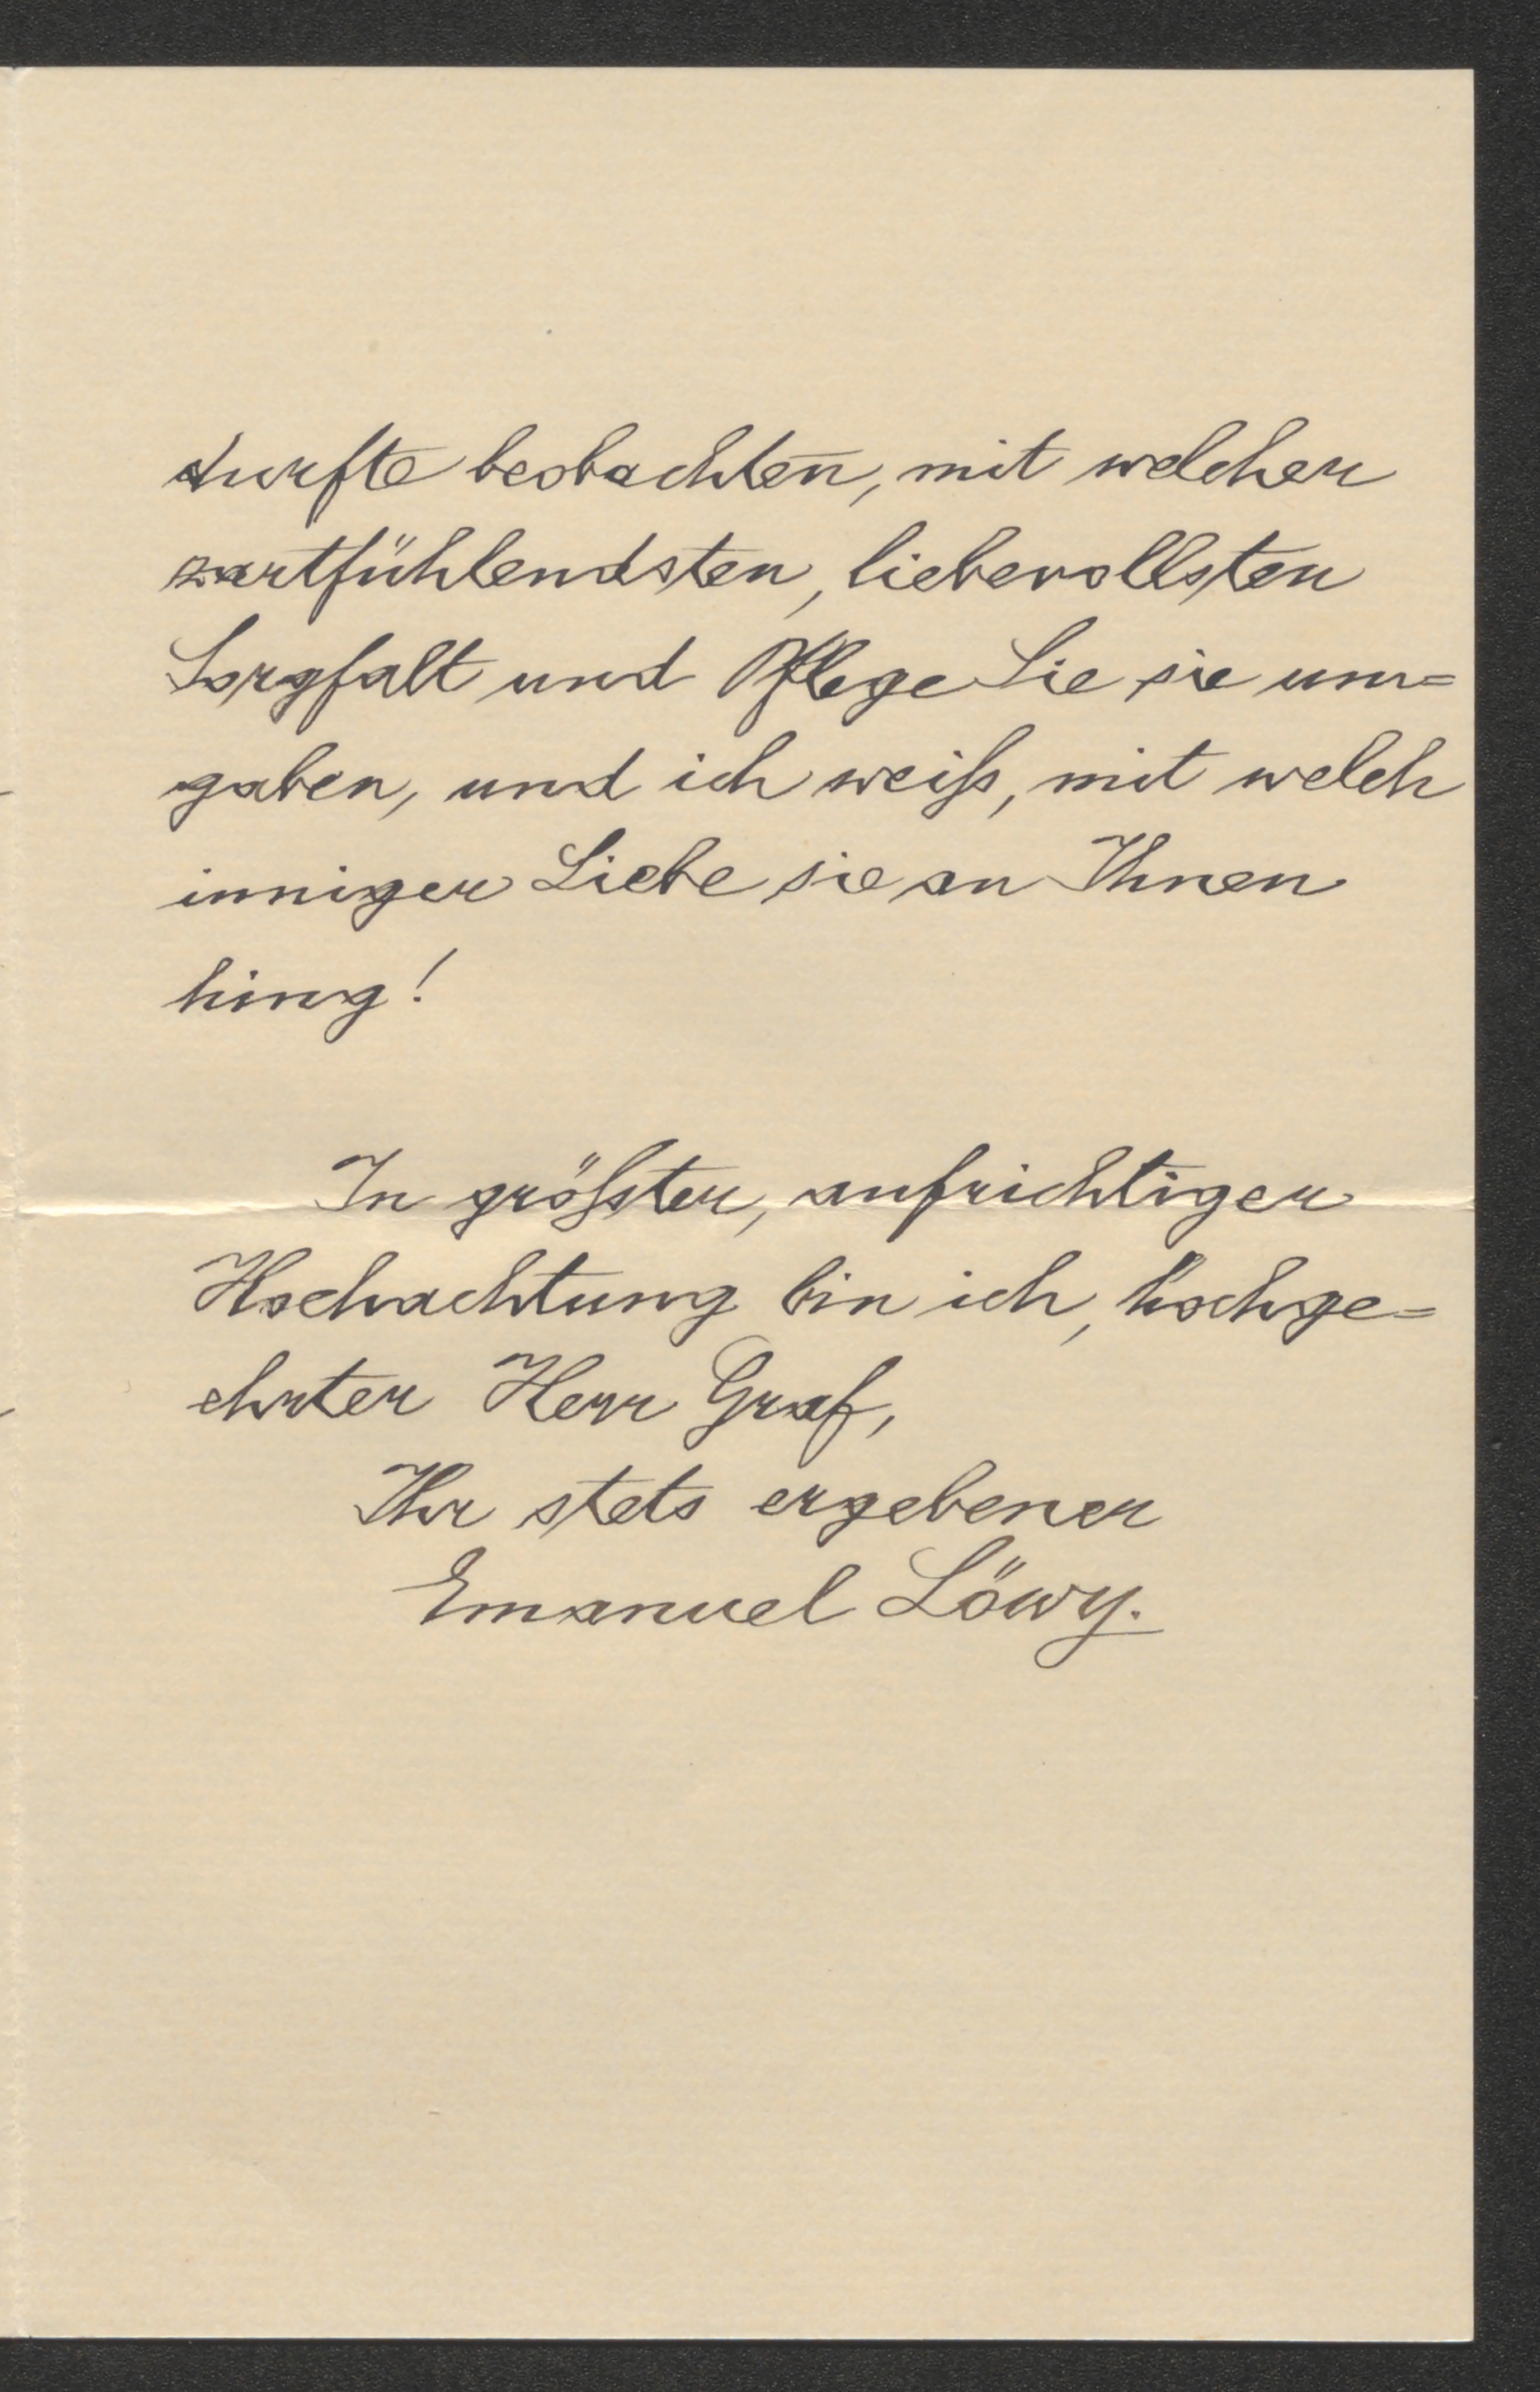 durfte beobachten, mit welcher
zartfühlendsten, liebevollsten
Sorgfalt und Pflege Sie sie um=
gaben, und ich weiß, mit welch
inniger Liebe sie an Ihnen
hing!
In größter, aufrichtiger
Hochachtung bin ich, hochge=
ehrter Herr Graf,
Ihr stets ergebener
Emanuel Löwy.